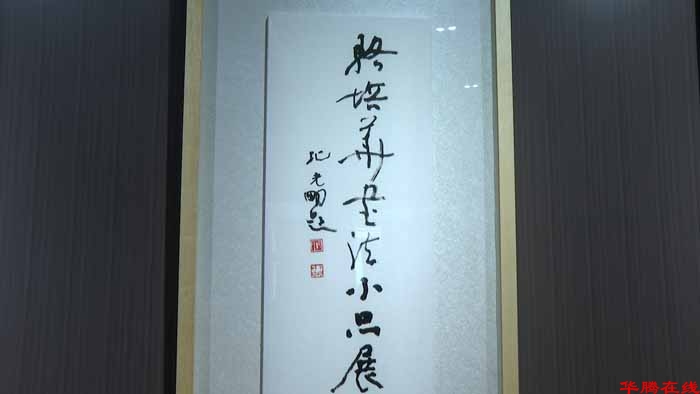 骆培华书法小品展
纪光明题
华腾在线